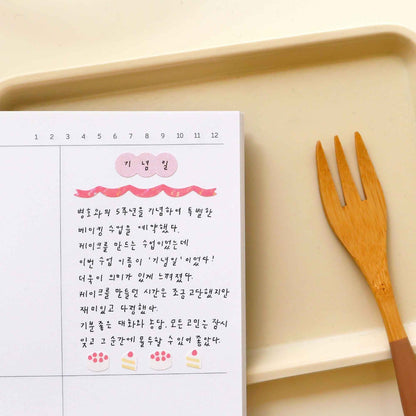 1 2 3 4 5 6 7 8 9 10 11 12
기 념 일
병호와의 5주년을 기념하여 특별한
베이킹 수업을 예약했다.
케이크를 만드는 수업이었는데
이번 수업 이름이 '기념일' 이었다!
더욱이 의미가 있게 느껴졌다.
케이크를 만들던 시간은 조금 고단했지만
재미있고 다정했다.
기분좋은 대화와 농담, 모든고민은 잠시
잊고 그 순간에 몰두할 수 있어 좋았다.